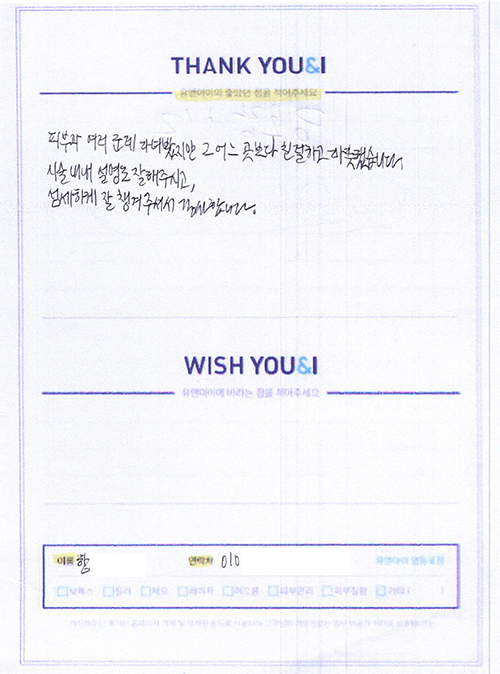 THANK YOU&I
유앤아이의 좋았던 점을 적어주세요
피부과 여러 군데 다녀봤지만 그 어느 곳보다 친절하고 따뜻했습니다
시술 내내 설명도 잘해주시고,
섬세하게 잘 챙겨주셔서 감사합니다.
WISH YOU&I
유앤아이에 바라는 점을 적어주세요
이름 함 연락처 010 유앤아이 영등포점
보톡스 필러 제모 레이저 여드름 피부관리 피부질환 기타 ( )